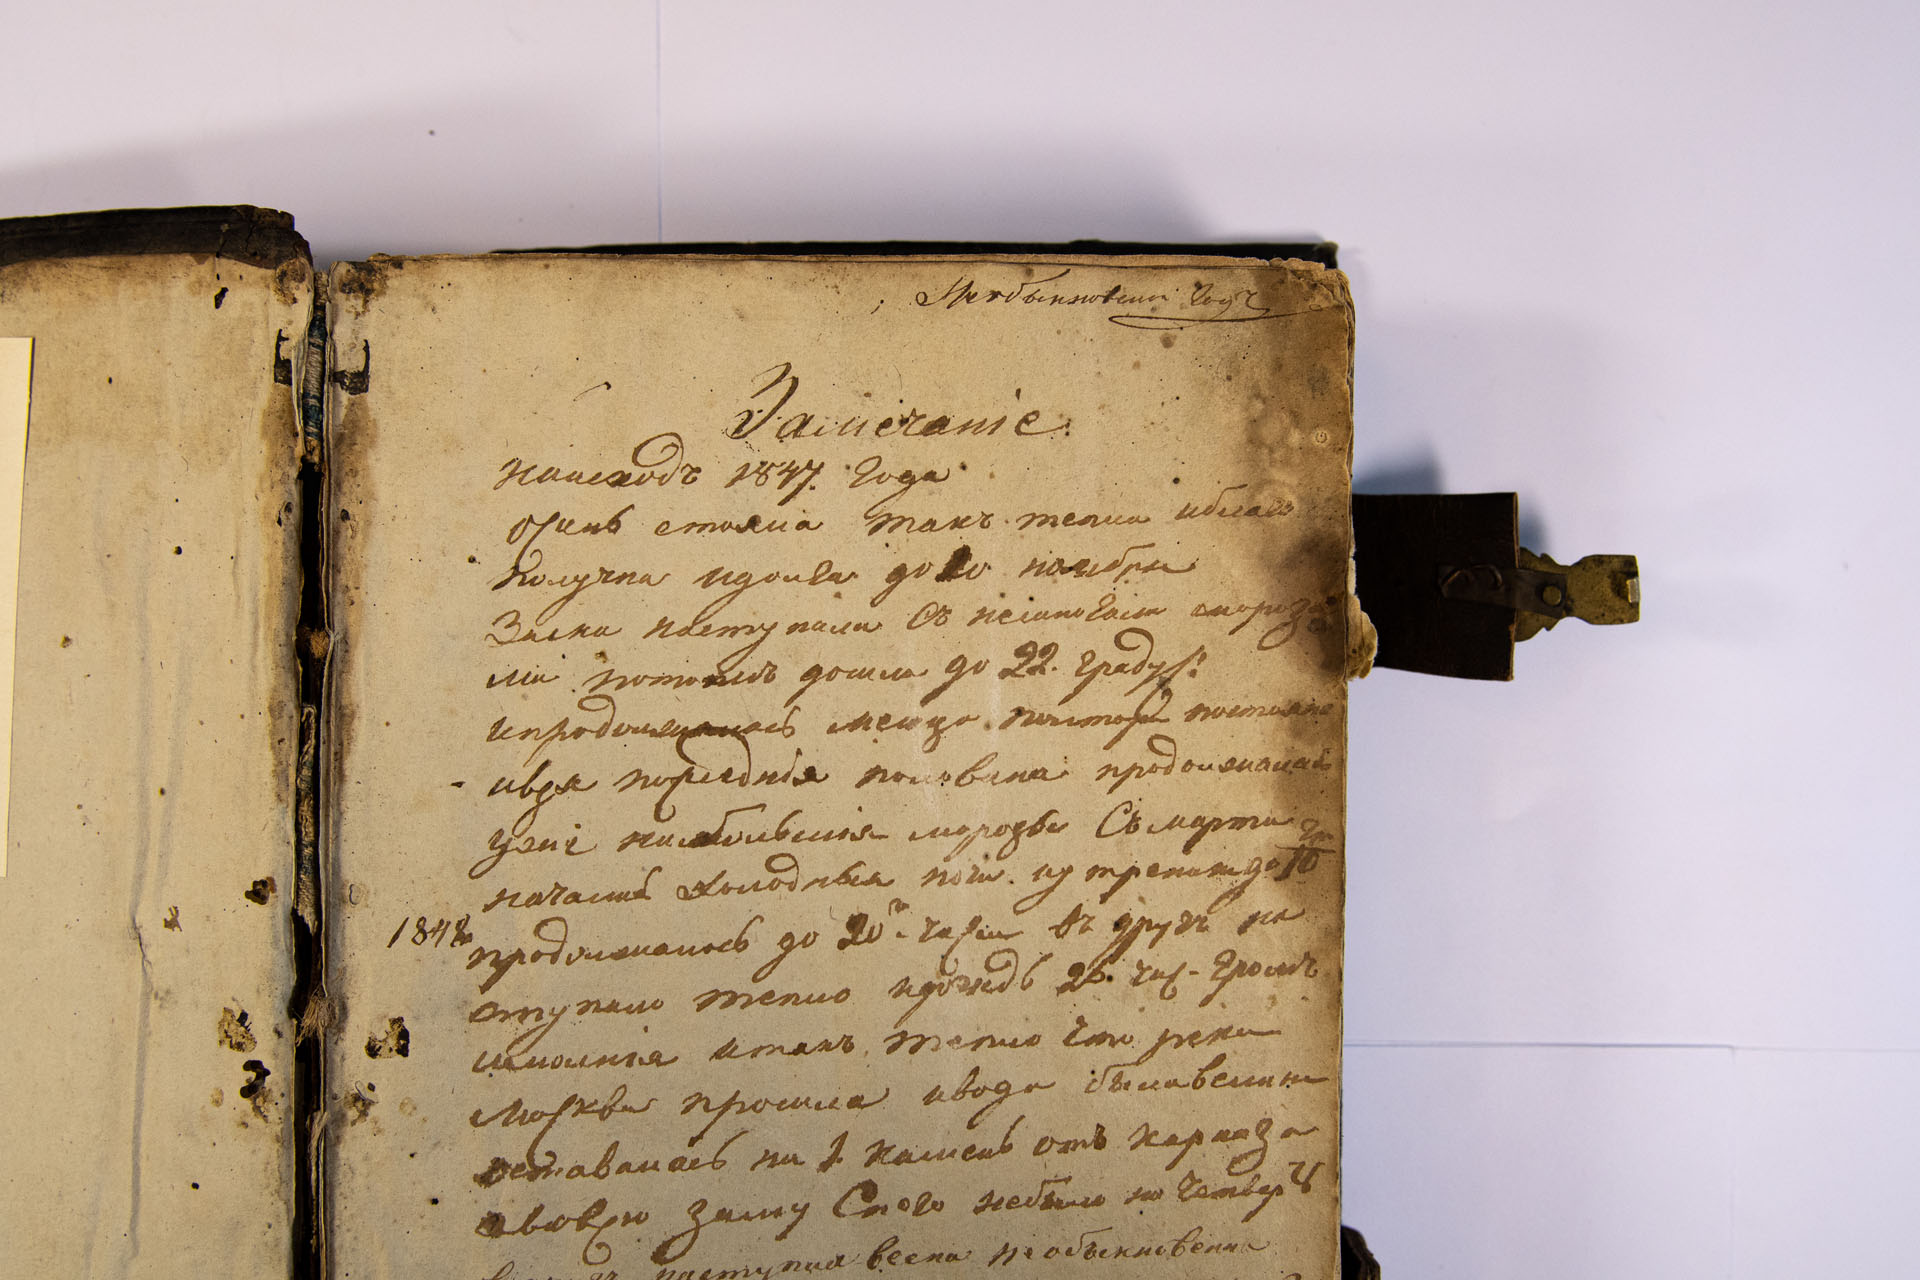 Необыкновенный годъ
Замечаніе.
наисходъ 1847. года
осень стояла такъ тепла
получна идолга до ноября
Зима наступила Съ мороза
ми потомъ дошла до 22. градус:
ипродолжалась месяца постояно
последнія половина продолжалась
уже наиболшія морозы Съ марта
начались холодныя до 10
1848
продолжалось до 20го числа въ другъ на
ступило тепло идождь 26. чис. громъ
имолнія итакъ тепло что река
Москва прошла ивода была
оставалась на 1. камень отъ
авовсю зиму Снего небыло на четверт
наступила весна необыкновенна